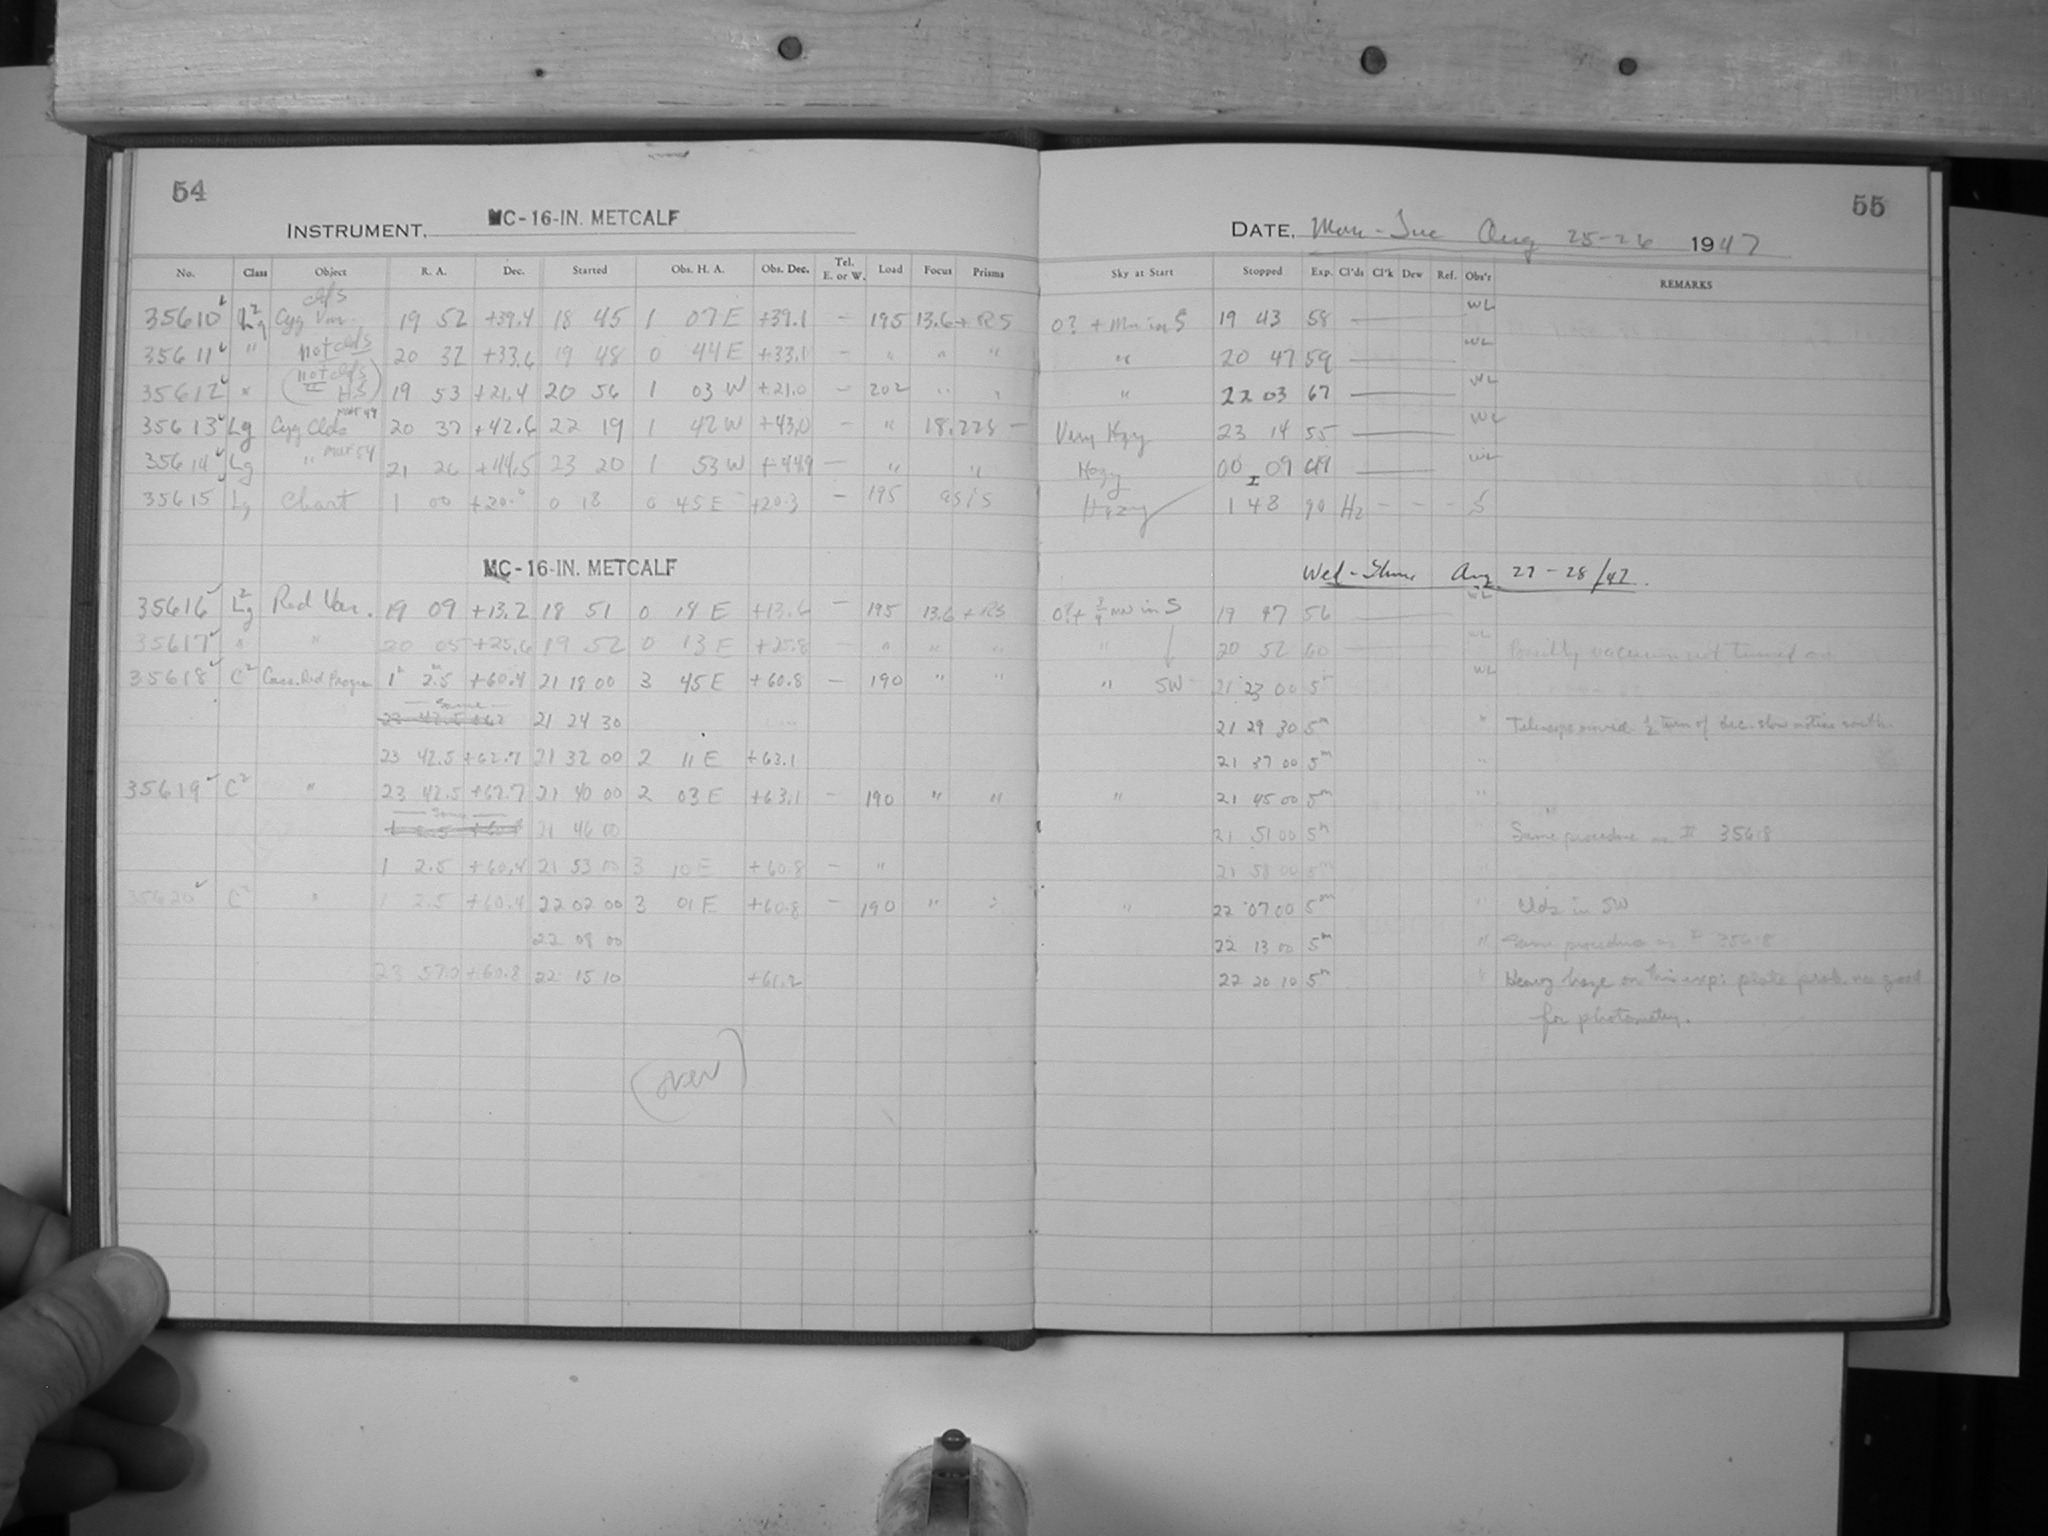 54
INSTRUMENT, MC-16-IN. METCALF
No. Class Object R. A. Dec. Started Obs. H. A. Obs. Dec. Tel. E. or W. Load Focus Prisms
clds
35610 Lg² Cyg Var. 19 52 +39.4 18 45 1 07 E +39.1 — 195 13.6 + RS
35611 " not clds 20 32 +33.6 19 48 0 44 E +33.1 — " " "
35612 " (not clds HS) 19 53 +21.4 20 56 1 03 W +21.0 — 202 " "
35613 Lg Cyg Clds 20 37 +42.6 22 19 1 42 W +43.0 — " 18.225 —
35614 Lg " 21 26 +44.5 23 20 1 53 W +44.9 — " "
35615 Lg Chart 1 00 +20. 0 18 0 45 E +20.3 — 195 as is
MC-16-IN. METCALF
35616 Lg² Red Var. 19 09 +13.2 18 51 0 18 E +13.6 — 195 13.6 + RS
35617 " " 20 05 +25.6 19 52 0 13 E +25.8 — " " "
35618 C² Cass. Red Program 1 2.5 +60.4 21 18 00 3 45 E +60.8 — 190 " "
— Same —
23 42.5 +62 21 24 30
23 42.5 +62.7 21 32 00 2 11 E +63.1
35619 C² " 23 42.5 +62.7 21 40 00 2 03 E +63.1 — 190 " "
— Same —
1 2.5 +60.4 21 46 00
1 2.5 +60.4 21 53 00 3 10 E +60.8 — "
35620 C² " 1 2.5 +60.4 22 02 00 3 01 E +60.8 — 190 " "
22 08 00
23 57.0 +60.8 22 15 10 +61.2
(over)
55
DATE, Mon-Tue Aug 25-26 1947
Sky at Start Stopped Exp. Cl'ds Cl'k Dew Ref. Obs'r REMARKS
0? + Mn in S 19 43 58 WL
" 20 47 59 WL
" 22 03 67 WL
Very Hzy 23 14 55 WL
Hazy 00 09 49 WL
Hazy 1 48 90 Hz - - - S
Wed-Thur Aug 27-28/47.
0? + 3/4 mn in S 19 47 56 WL
" 20 52 60 WL Possibly vacuum not turned on
" SW 21 23 00 5 WL
21 29 30 5m " Telescope moved ½ turn of dec. slow motion south.
21 37 00 5m "
" 21 45 00 5m "
21 51 00 5m Same procedure as # 35618
21 58 00 5m "
" 22 07 00 5m " Clds in SW
22 13 00 5m " Same procedure as # 35618
22 20 10 5m " Heavy haze on this exp; plate prob. no good
for photometry.